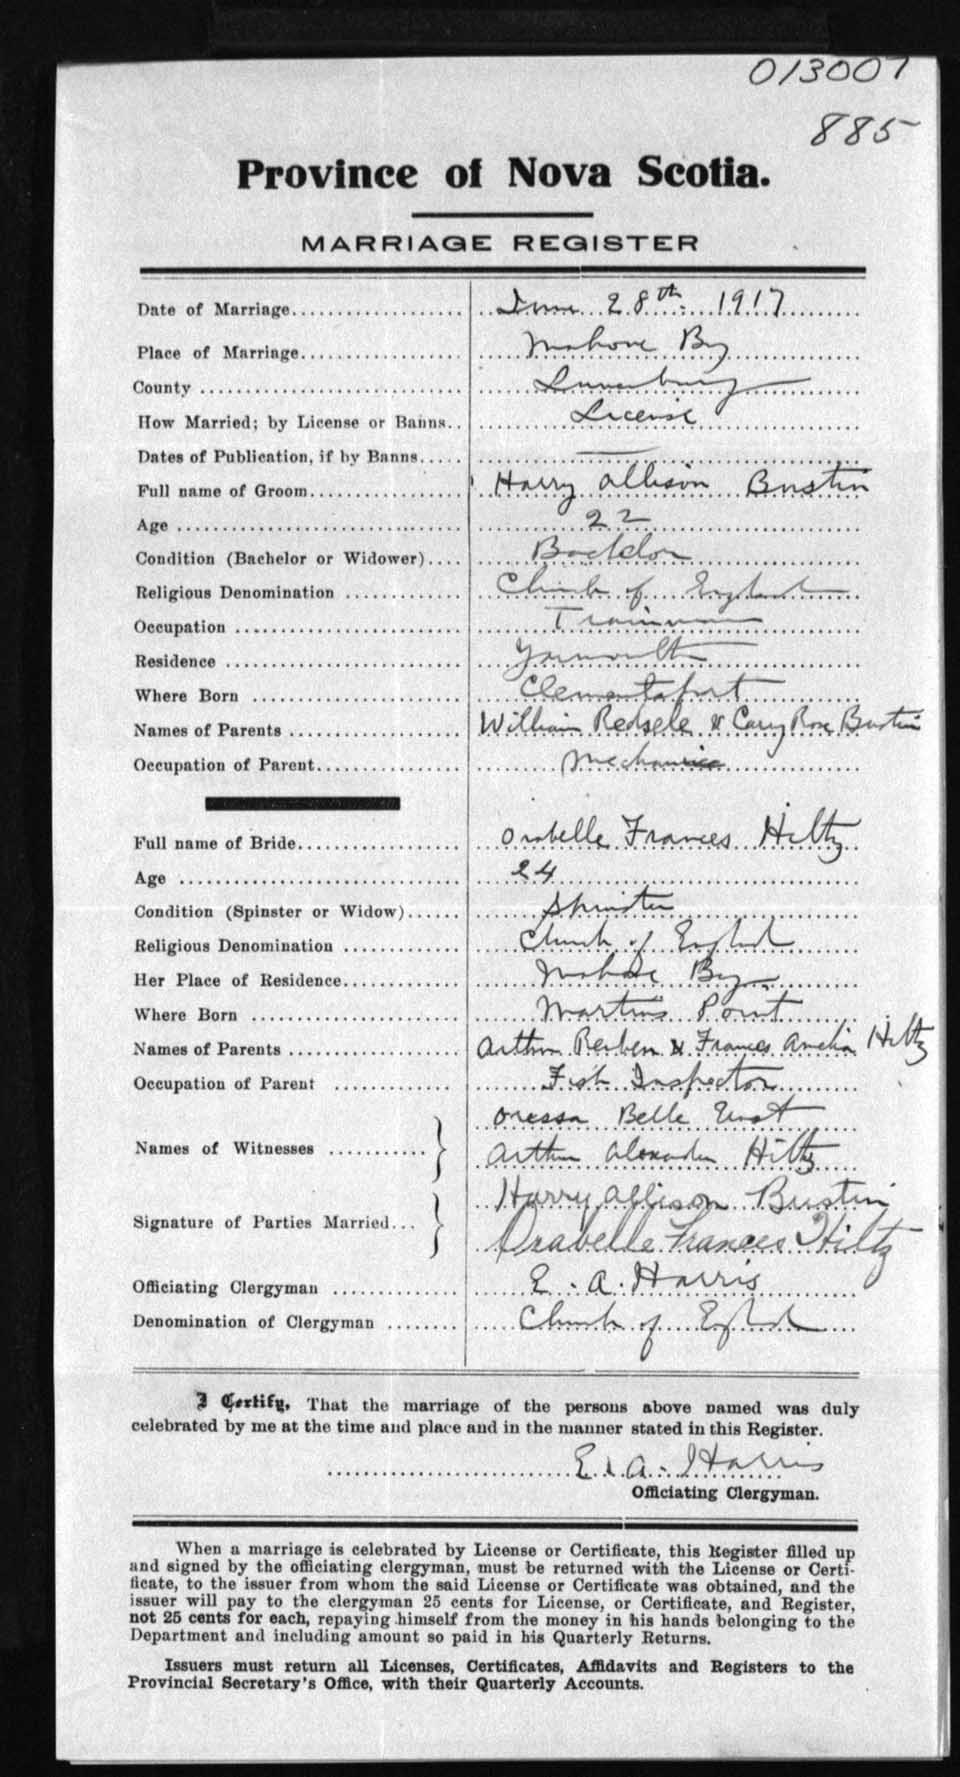 013007
885
Province of Nova Scotia.
MARRIAGE REGISTER
Date of Marriage June 28th 1917
Place of Marriage Mahone Bay
County Lunenburg
How Married; by License or Banns License
Dates of Publication, if by Banns —
Full name of Groom Harry Allison Bustin
Age 22
Condition (Bachelor or Widower) Bachelor
Religious Denomination Church of England
Occupation Trainman
Residence Yarmouth
Where Born Clementsport
Names of Parents William Redsele & Carry Rose Bustin
Occupation of Parent Mechanic
Full name of Bride Orabelle Frances Hiltz
Age 24
Condition (Spinster or Widow) Spinster
Religious Denomination Church of England
Her Place of Residence Mahone Bay
Where Born Martins Point
Names of Parents Arthur Reuben & Frances Amelia Hiltz
Occupation of Parent Fish Inspector
Names of Witnesses Oressa Belle Ernst
Arthur Alexander Hiltz
Signature of Parties Married Harry Allison Bustin
Orabelle Frances Hiltz
Officiating Clergyman E. A. Harris
Denomination of Clergyman Church of England
I Certify, That the marriage of the persons above named was duly
celebrated by me at the time and place and in the manner stated in this Register.
E. A. Harris
Officiating Clergyman.
When a marriage is celebrated by License or Certificate, this Register filled up
and signed by the officiating clergyman, must be returned with the License or Certi-
ficate, to the issuer from whom the said License or Certificate was obtained, and the
issuer will pay to the clergyman 25 cents for License, or Certificate, and Register,
not 25 cents for each, repaying himself from the money in his hands belonging to the
Department and including amount so paid in his Quarterly Returns.
Issuers must return all Licenses, Certificates, Affidavits and Registers to the
Provincial Secretary's Office, with their Quarterly Accounts.